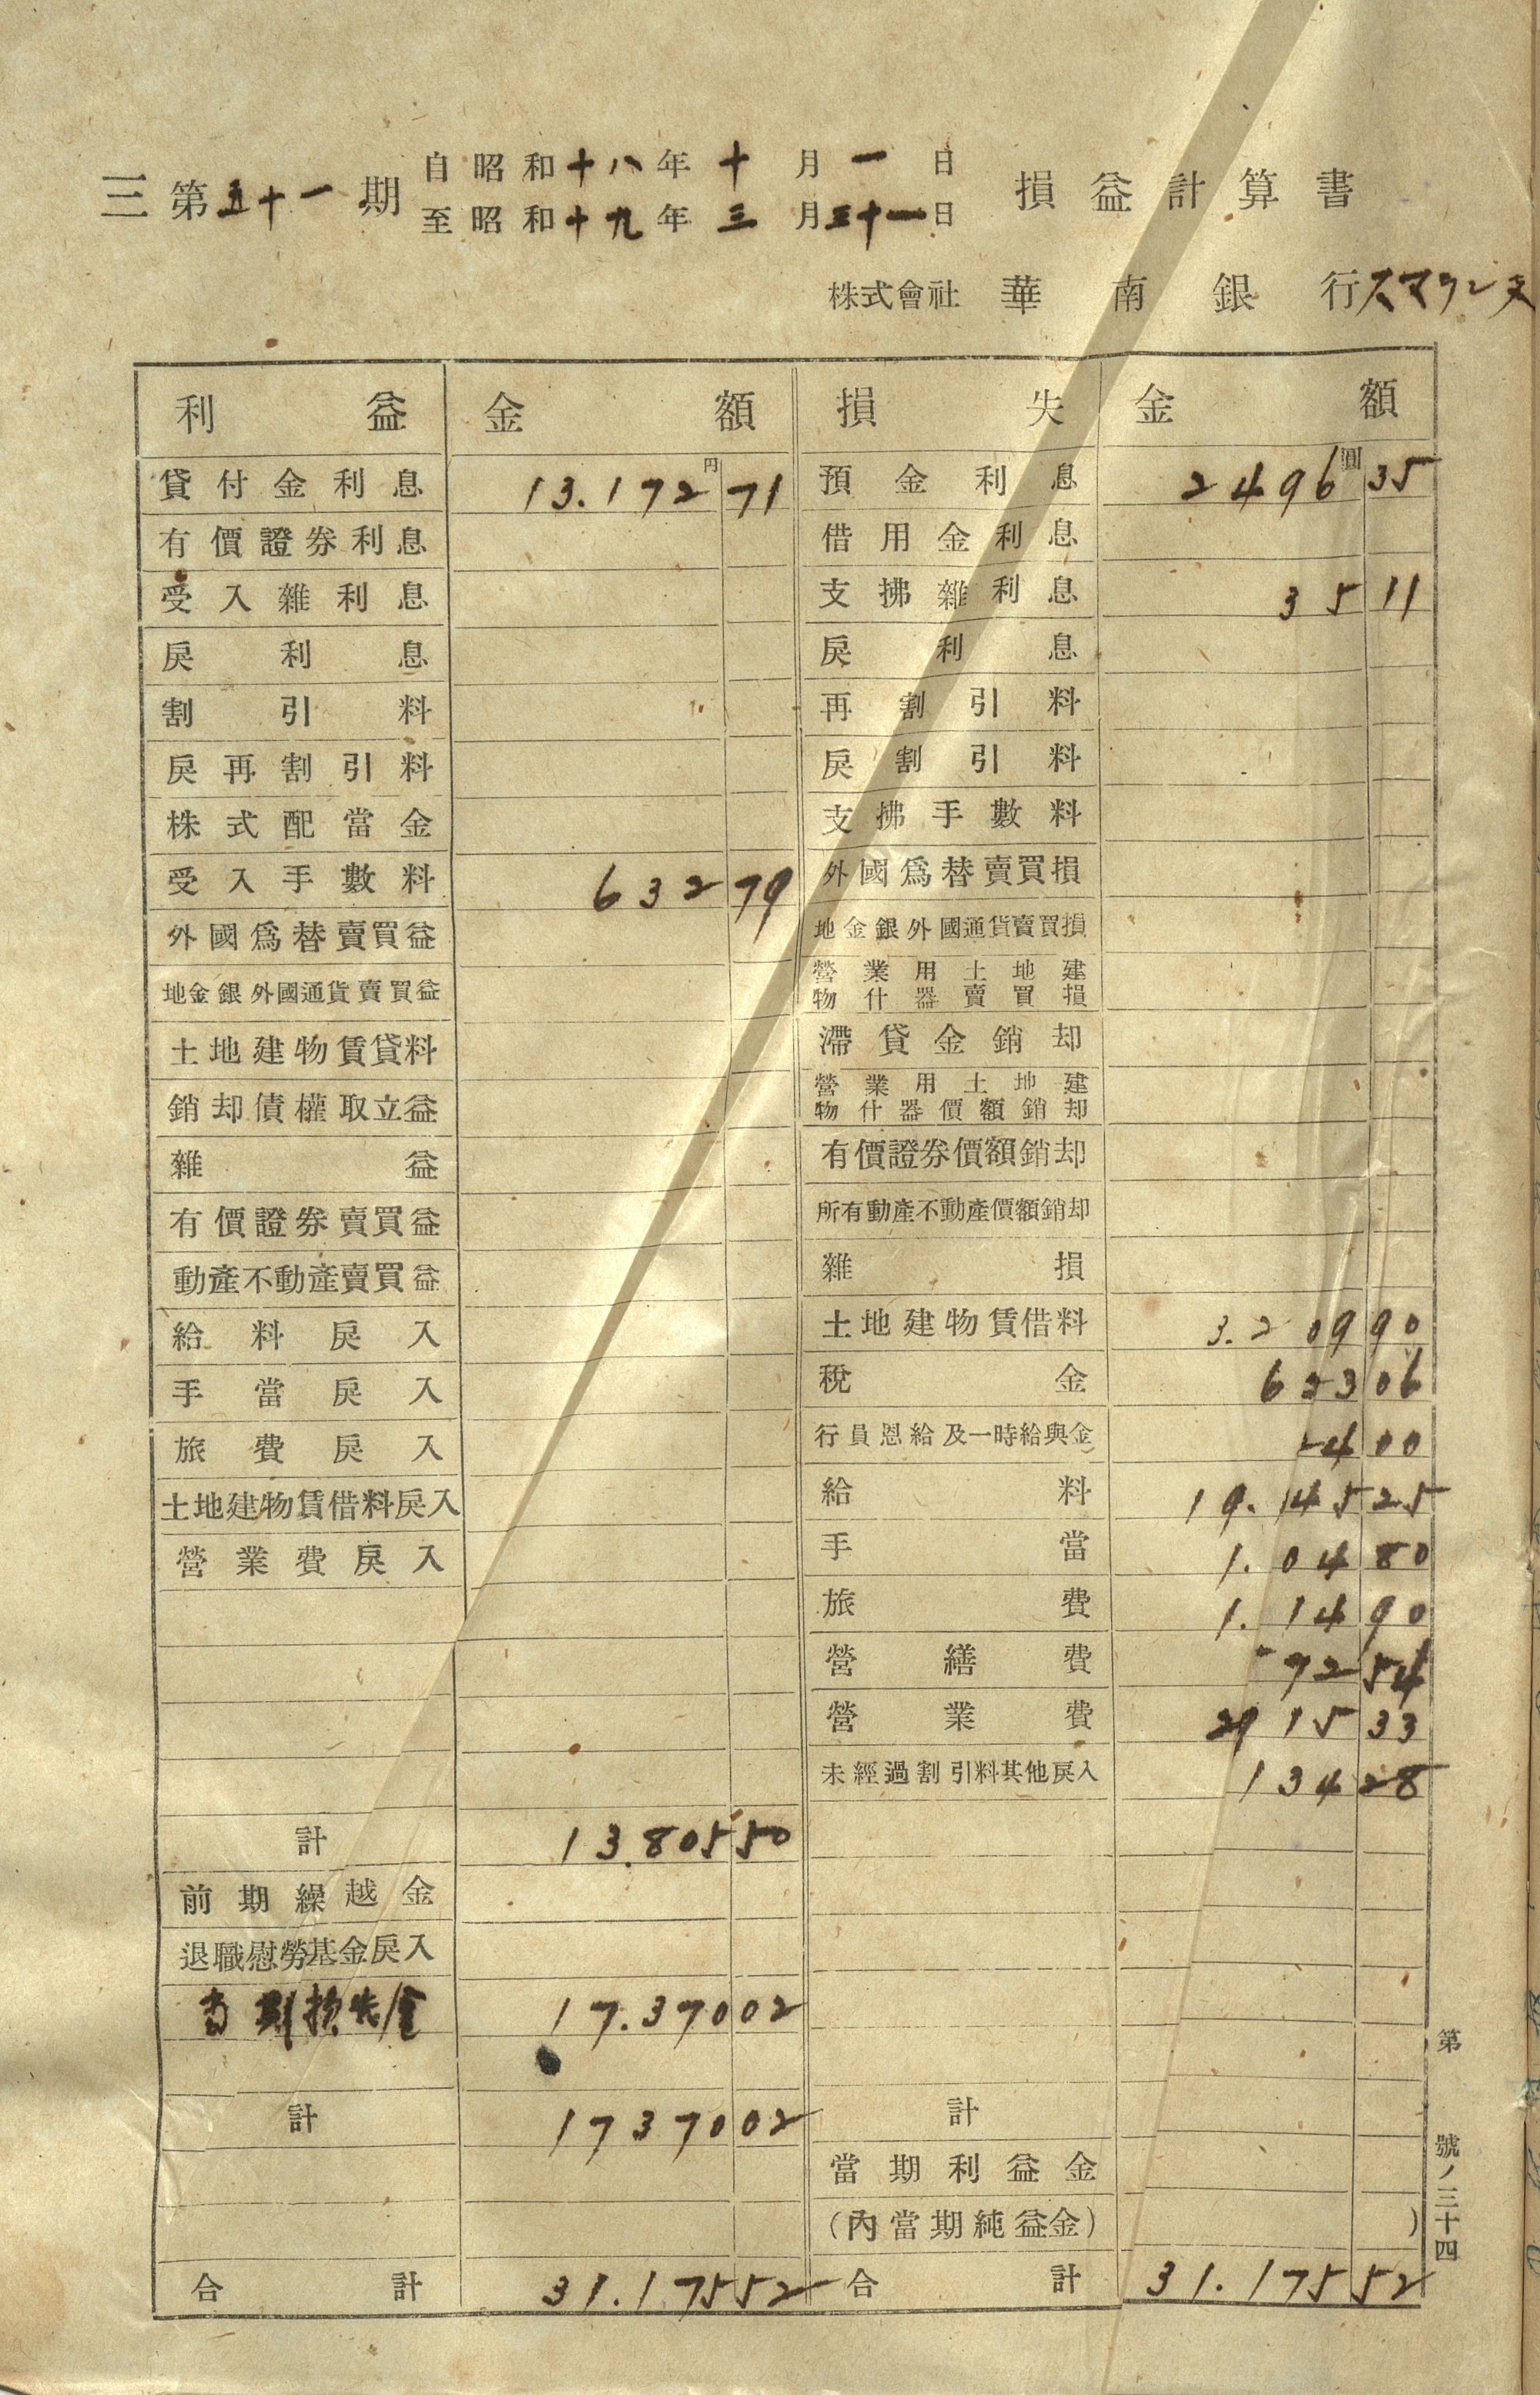 三 第五十一期 自昭和十八年十月一日 損益計算書
至昭和十九年三月三十一日
株式會社 華南銀行スマラン支
利益 金額 損失 金額
貸付金利息 13.172円71 預金利息 2496圓35
有價證券利息 借用金利息
受入雜利息 支拂雜利息 35 11
戾利息 戾利息
割引料 再割引料
戾再割引料 戾割引料
株式配當金 支拂手數料
受入手數料 632 79 外國爲替賣買損
外國爲替賣買益 地金銀外國通貨賣買損
地金銀外國通貨賣買益 營業用土地建物什器賣買損
土地建物賃貸料 滯貸金銷却
銷却債權取立益 營業用土地建物什器價額銷却
雜益 有價證券價額銷却
有價證券賣買益 所有動產不動產價額銷却
動產不動產賣買益 雜損
給料戾入 土地建物賃借料 3.209 90
手當戾入 稅金 623 06
旅費戾入 行員恩給及一時給與金 400
土地建物賃借料戾入 給料 19.145 25
營業費戾入 手當 1.04 80
旅費 1.14 90
營繕費 72 54
營業費 2915 33
未經過割引料其他戾入 134 28
計 13.805 50
前期繰越金
退職慰勞基金戾入
当期損失金 17.370 02
計 17370 02 計
當期利益金
(內當期純益金)
合計 31.175 52 合計 31.175 52
第 號ノ三十四